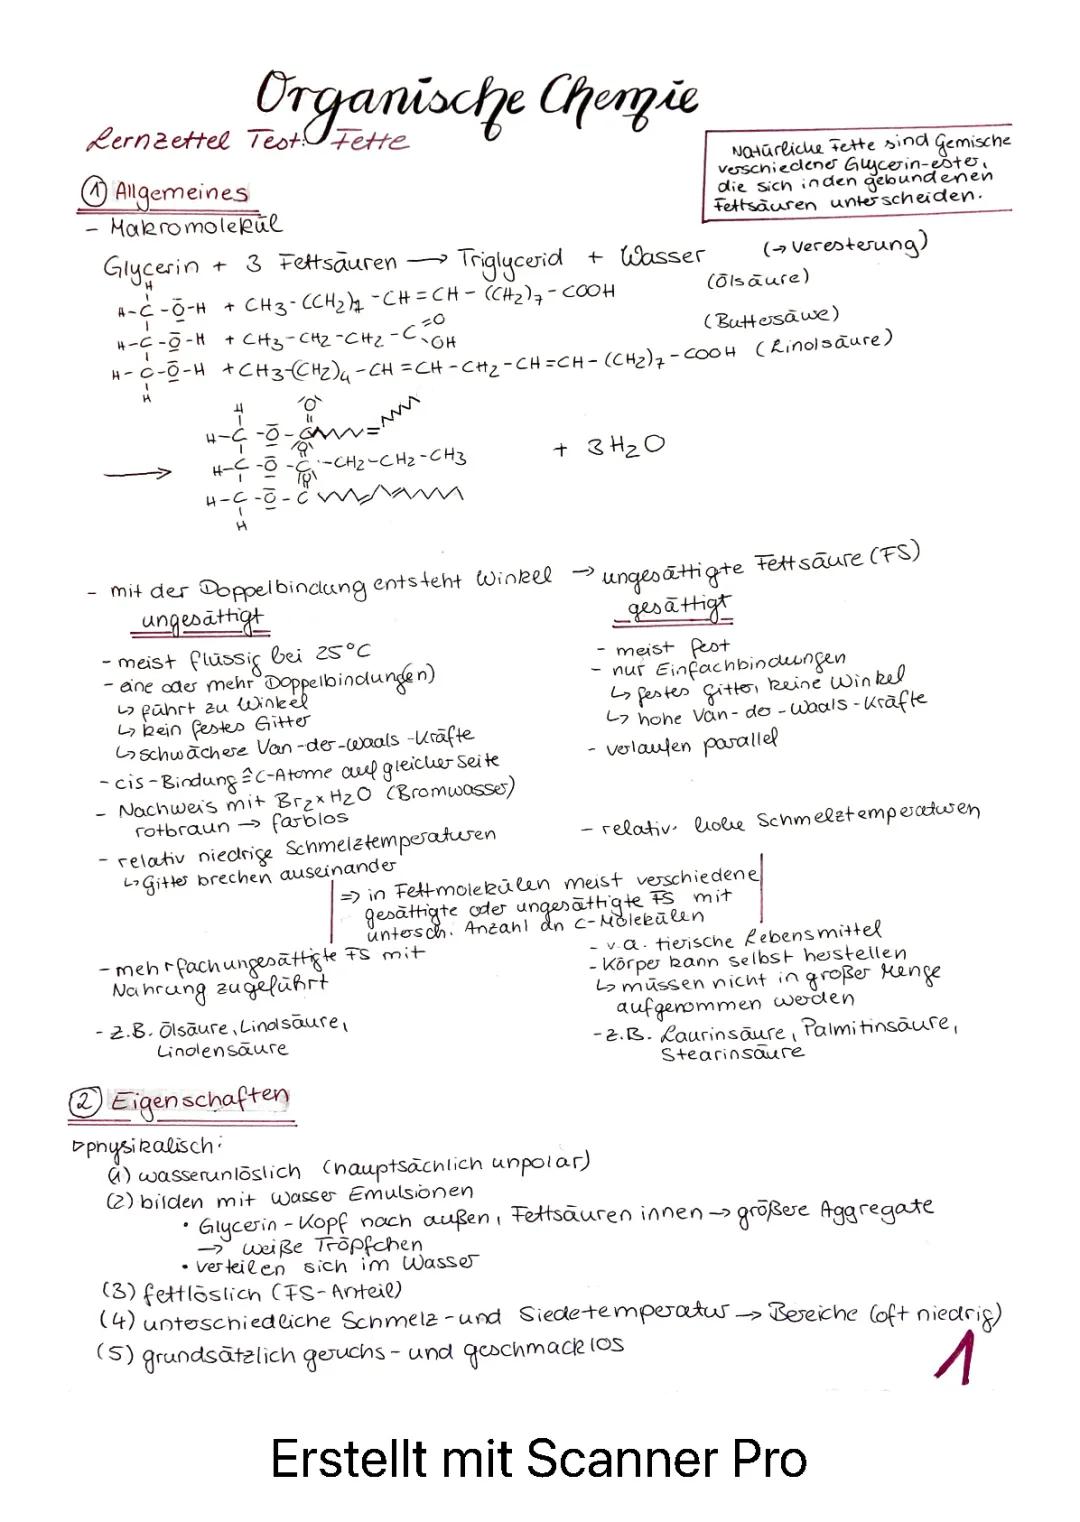 Organische Chemie
Lernzettel Test: Fette
Natürliche Fette sind Gemische
verschiedener Glycerin-ester,
die sich in den gebundenen
Fettsäuren unterscheiden.
① Allgemeines
- Makromolekül
Glycerin + 3 Fettsäuren → Triglycerid + Wasser (→ Veresterung)
H
H-C-O-H + CH3-(CH2)7-CH=CH-(CH2)7-COOH (Ölsäure)
H-C-O-H + CH3-CH2-CH2-C=O OH (Buttersäure)
H-C-O-H + CH3-(CH2)4-CH=CH-CH2-CH=CH-(CH2)7-COOH (Linolsäure)
H
H O
H-C-O-C =
O
→ H-C-O-C-CH2-CH2-CH3 + 3H2O
O
H-C-O-C
H
- mit der Doppelbindung entsteht Winkel → ungesättigte Fettsäure (FS)
ungesättigt
- meist flüssig bei 25°C
- eine oder mehr Doppelbindung(en)
↳ führt zu Winkel
↳ kein festes Gitter
↳ schwächere Van-der-Waals-Kräfte
- cis-Bindung ≙ C-Atome auf gleicher Seite
- Nachweis mit Br2 x H2O (Bromwasser)
rotbraun → farblos
- relativ niedrige Schmelztemperaturen
↳ Gitter brechen auseinander
gesättigt
- meist fest
- nur Einfachbindungen
↳ festes Gitter, keine Winkel
↳ hohe Van-der-Waals-Kräfte
- verlaufen parallel
- relativ hohe Schmelztemperaturen
⇒ in Fettmolekülen meist verschiedene
gesättigte oder ungesättigte FS mit
untersch. Anzahl an C-Molekülen
- mehrfachungesättigte FS mit
Nahrung zugeführt
- z.B. Ölsäure, Linolsäure,
Linolensäure
- v.a. tierische Lebensmittel
- Körper kann selbst herstellen
↳ müssen nicht in großer Menge
aufgenommen werden
- z.B. Laurinsäure, Palmitinsäure,
Stearinsäure
② Eigenschaften
▷ physikalisch:
(1) wasserunlöslich (hauptsächlich unpolar)
(2) bilden mit Wasser Emulsionen
• Glycerin-Kopf nach außen, Fettsäuren innen → größere Aggregate
→ weiße Tröpfchen
• verteilen sich im Wasser
(3) fettlöslich (FS-Anteil)
(4) unterschiedliche Schmelz- und Siedetemperatur → Bereiche (oft niedrig)
(5) grundsätzlich geruchs- und geschmacklos
1
Erstellt mit Scanner Pro